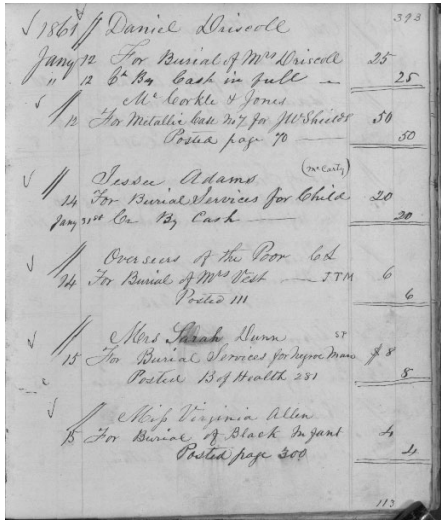 393
1861 Daniel Driscoll
Jany 12 For Burial of Mrs Driscoll 25
" 12 Cr By Cash in full 25
Mc Corkle & Jones
12 For Metallic Case No 7 for J W Shields 50
Posted page 70 50
(McCarty)
Jessee Adams
14 For Burial Services for Child 20
Jany 31st Cr By Cash 20
Overseers of the Poor
14 For Burial of Mrs Vest J.T.M 6
Posted 111 6
Mrs Sarah Dunn
15 For Burial Services for negroe Man $8
Posted B of Health 281 8
Miss Virginia Allen
15 For Burial of Black Infant 4
Posted page 300 4
113